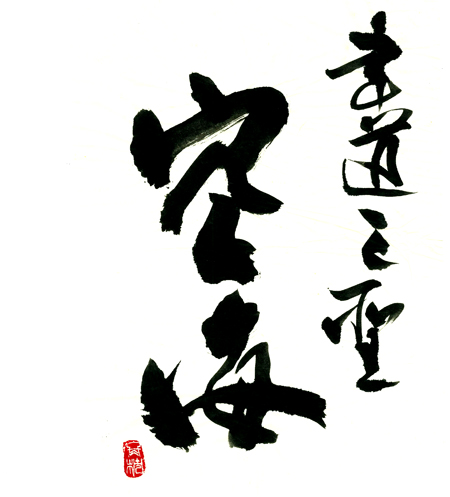 書道之聖
空海